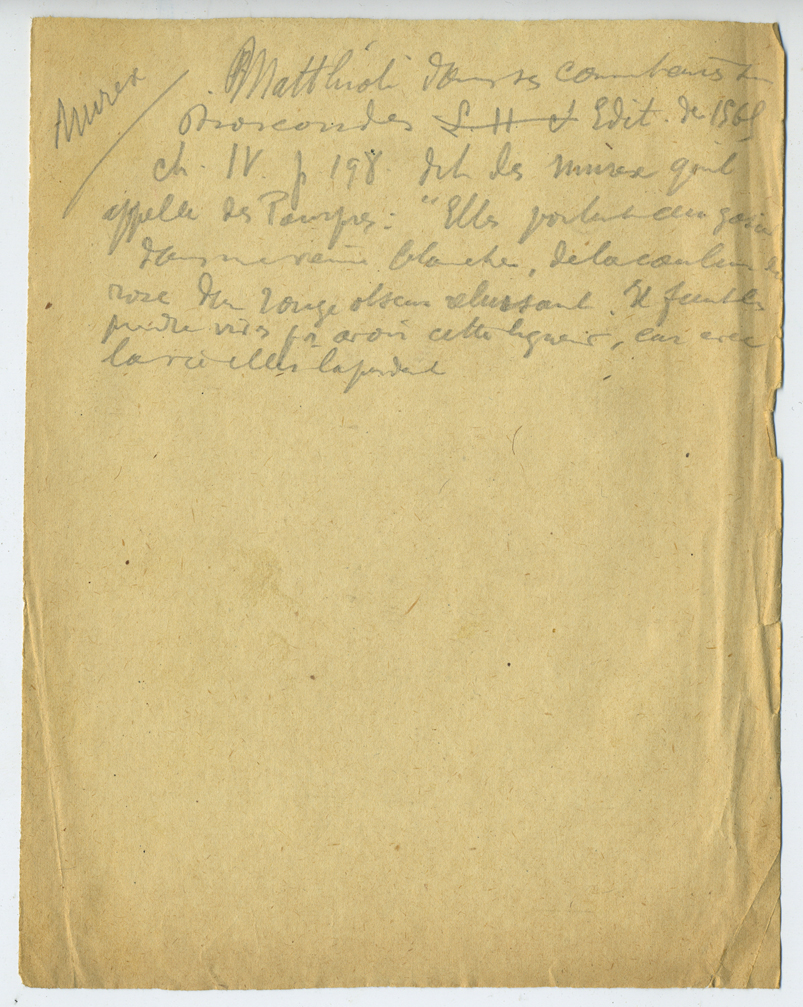 Murex
Matthioli dans ses commentaires sur
Dioscorides L. II Edit. de 1565
ch. IV p 198 dit des murex qu'il
appelle des Pourpres: "Elles portent au gosier
dans une veine blanche, de la couleur de
rose d'un rouge obscur reluisant. Il faut les
prendre vives pr avoir cette liqueur, car avec
la vie elles la perdent